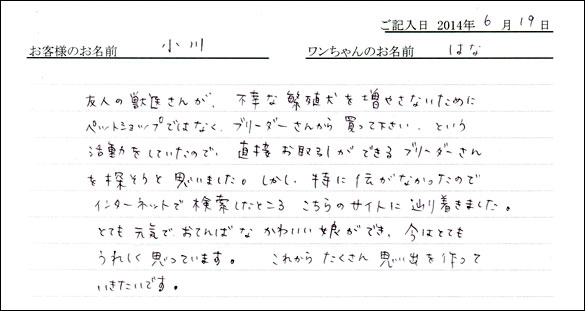 ご記入日 2014年 6 月 19 日
お客様のお名前 小川 ワンちゃんのお名前 はな
友人の獣医さんが、不幸な繁殖犬を増やさないために
ペットショップではなく、ブリーダーさんから買って下さい、という
活動をしていたので、直接お取引ができるブリーダーさん
を探そうと思いました。しかし、特に伝がなかったので
インターネットで検索したところ こちらのサイトに辿り着きました。
とても元気で おてんばな かわいい娘ができ、今はとても
うれしく思っています。 これから たくさん 思い出を作って
いきたいです。